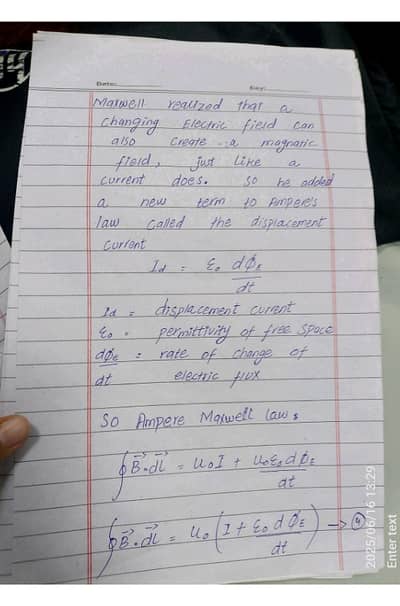 Date:
Day:
Maxwell realized that a
changing Electric field can
also create a magnatic
field, just like a
current does. so he added
a new term to Ampere's
law called the displacement
current
Id = ε₀ dϕE/dt
Id = displacement current
ε₀ = permittivity of free space
dϕE/dt = rate of change of
electric flux
So Ampere Maxwell law:
∮B⃗.dl⃗ = u₀I + u₀ε₀dϕE/dt
∮B⃗.dl⃗ = u₀(I + ε₀dϕE/dt) → ④
2025/06/16 13:29
Enter text